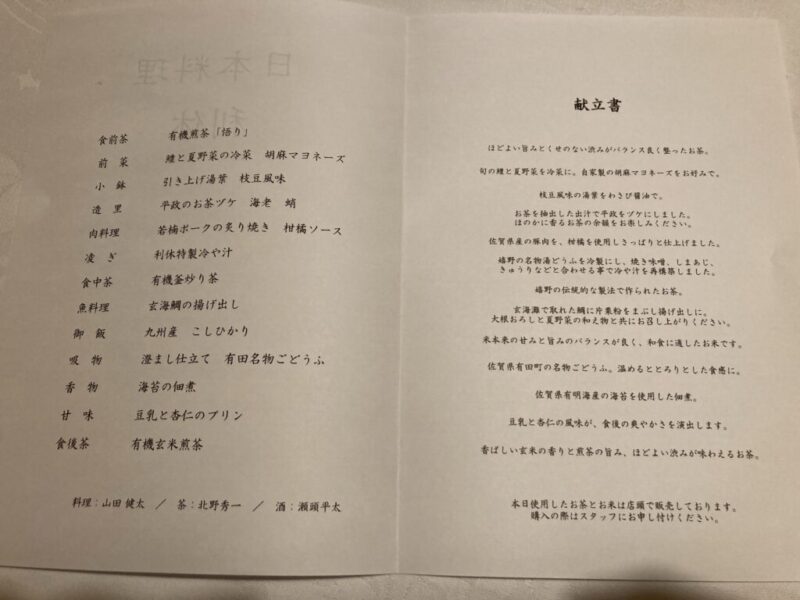 日本料理
利休
食前茶 有機煎茶「悟り」
前菜 鱧と夏野菜の冷菜 胡麻マヨネーズ
小鉢 引き上げ湯葉 枝豆風味
造里 平政のお茶ヅケ 海老 蛸
肉料理 若楠ポークの炙り焼き 柑橘ソース
凌ぎ 利休特製冷や汁
食中茶 有機釜炒り茶
魚料理 玄海鯛の揚げ出し
御飯 九州産 こしひかり
吸物 澄まし仕立て 有田名物ごどうふ
香物 海苔の佃煮
甘味 豆乳と杏仁のプリン
食後茶 有機玄米煎茶
料理：山田 健太 ／ 茶：北野秀一 ／ 酒：瀬頭平太
献立書
ほどよい旨みとくせのない渋みがバランス良く整ったお茶。
旬の鱧と夏野菜を冷菜に。自家製の胡麻マヨネーズをお好みで。
枝豆風味の湯葉をわさび醤油で。
お茶を抽出した出汁で平政をヅケにしました。
ほのかに香るお茶の余韻をお楽しみください。
佐賀県産の豚肉を、柑橘を使用しさっぱりと仕上げました。
嬉野の名物湯どうふを冷製にし、焼き味噌、しまあじ、
きゅうりなどと合わせる事で冷や汁を再構築しました。
嬉野の伝統的な製法で作られたお茶。
玄海灘で取れた鯛に片栗粉をまぶし揚げ出しに。
大根おろしと夏野菜の和え物と共にお召し上がりください。
米本来の甘みと旨みのバランスが良く、和食に適したお米です。
佐賀県有田町の名物ごどうふ。温めるととろりとした食感に。
佐賀県有明海産の海苔を使用した佃煮。
豆乳と杏仁の風味が、食後の爽やかさを演出します。
香ばしい玄米の香りと煎茶の旨み、ほどよい渋みが味わえるお茶。
本日使用したお茶とお米は店頭で販売しております。
購入の際はスタッフにお申し付けください。